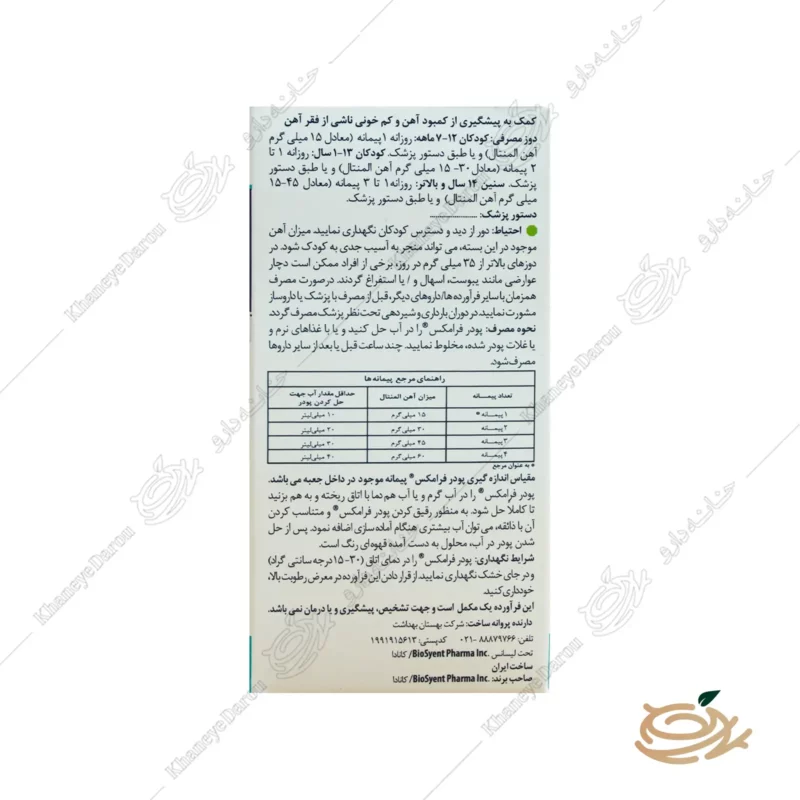 کمک به پیشگیری از کمبود آهن و کم خونی ناشی از فقر آهن
دوز مصرفی: کودکان ۱۲-۷ ماهه: روزانه ۱ پیمانه (معادل ۱۵ میلی گرم
آهن المنتال) و یا طبق دستور پزشک. کودکان ۱۳-۱ سال: روزانه ۱ تا
۲ پیمانه (معادل ۳۰- ۱۵ میلی گرم آهن المنتال) و یا طبق دستور
پزشک. سنین ۱۴ سال و بالاتر: روزانه ۱ تا ۳ پیمانه (معادل ۴۵-۱۵
میلی گرم آهن المنتال) و یا طبق دستور پزشک.
دستور پزشک: ....................
احتیاط: دور از دید و دسترس کودکان نگهداری نمایید. میزان آهن
موجود در این بسته، می تواند منجر به آسیب جدی به کودک شود. در
دوزهای بالاتر از ۳۵ میلی گرم در روز، برخی از افراد ممکن است دچار
عوارضی مانند یبوست، اسهال و / یا استفراغ گردند. درصورت مصرف
همزمان با سایر فرآورده ها/داروهای دیگر، قبل از مصرف با پزشک یا داروساز
مشورت نمایید. در دوران بارداری و شیردهی تحت نظر پزشک مصرف گردد.
نحوه مصرف: پودر فرامکس® را در آب حل کنید و یا با غذاهای نرم و
یا غلات پودر شده، مخلوط نمایید. چند ساعت قبل یا بعد از سایر داروها
مصرف شود.
راهنمای مرجع پیمانه ها
تعداد پیمـانـه میزان آهن المنتال حداقل مقدار آب جهت حل کردن پودر
۱ پیمـانه * ۱۵ میلی گرم ۱۰ میلی لیتر
۲ پیمـانه ۳۰ میلی گرم ۲۰ میلی لیتر
۳ پیمـانه ۴۵ میلی گرم ۳۰ میلی لیتر
۴ پیمـانه ۶۰ میلی گرم ۴۰ میلی لیتر
* به عنوان مرجع
مقیاس اندازه گیری پودر فرامکس® پیمانه موجود در داخل جعبه می باشد.
پودر فرامکس® را در آب گرم و یا آب هم دما با اتاق ریخته و به هم بزنید
تا کاملا حل شود. به منظور رقیق کردن پودر فرامکس® و متناسب کردن
آن با ذائقه، می توان آب بیشتری هنگام آماده سازی اضافه نمود. پس از حل
شدن پودر در آب، محلول به دست آمده قهوه ای رنگ است.
شرایط نگهداری: پودر فرامکس® را در دمای اتاق (۳۰-۱۵ درجه سانتی گراد)
و در جای خشک نگهداری نمایید. از قرار دادن این فرآورده در معرض رطوبت بالا،
خودداری کنید.
این فرآورده یک مکمل است و جهت تشخیص، پیشگیری و یا درمان نمی باشد.
دارنده پروانه ساخت: شرکت بهستان بهداشت
تلفن: ۸۸۸۷۹۷۶۶ -۰۲۱ کدپستی: ۱۹۹۱۹۱۵۶۱۳
تحت لیسانس .BioSyent Pharma Inc/ کانادا
ساخت ایران
صاحب برند: .BioSyent Pharma Inc/ کانادا
خـانـه دارو
KhaneyeDarou